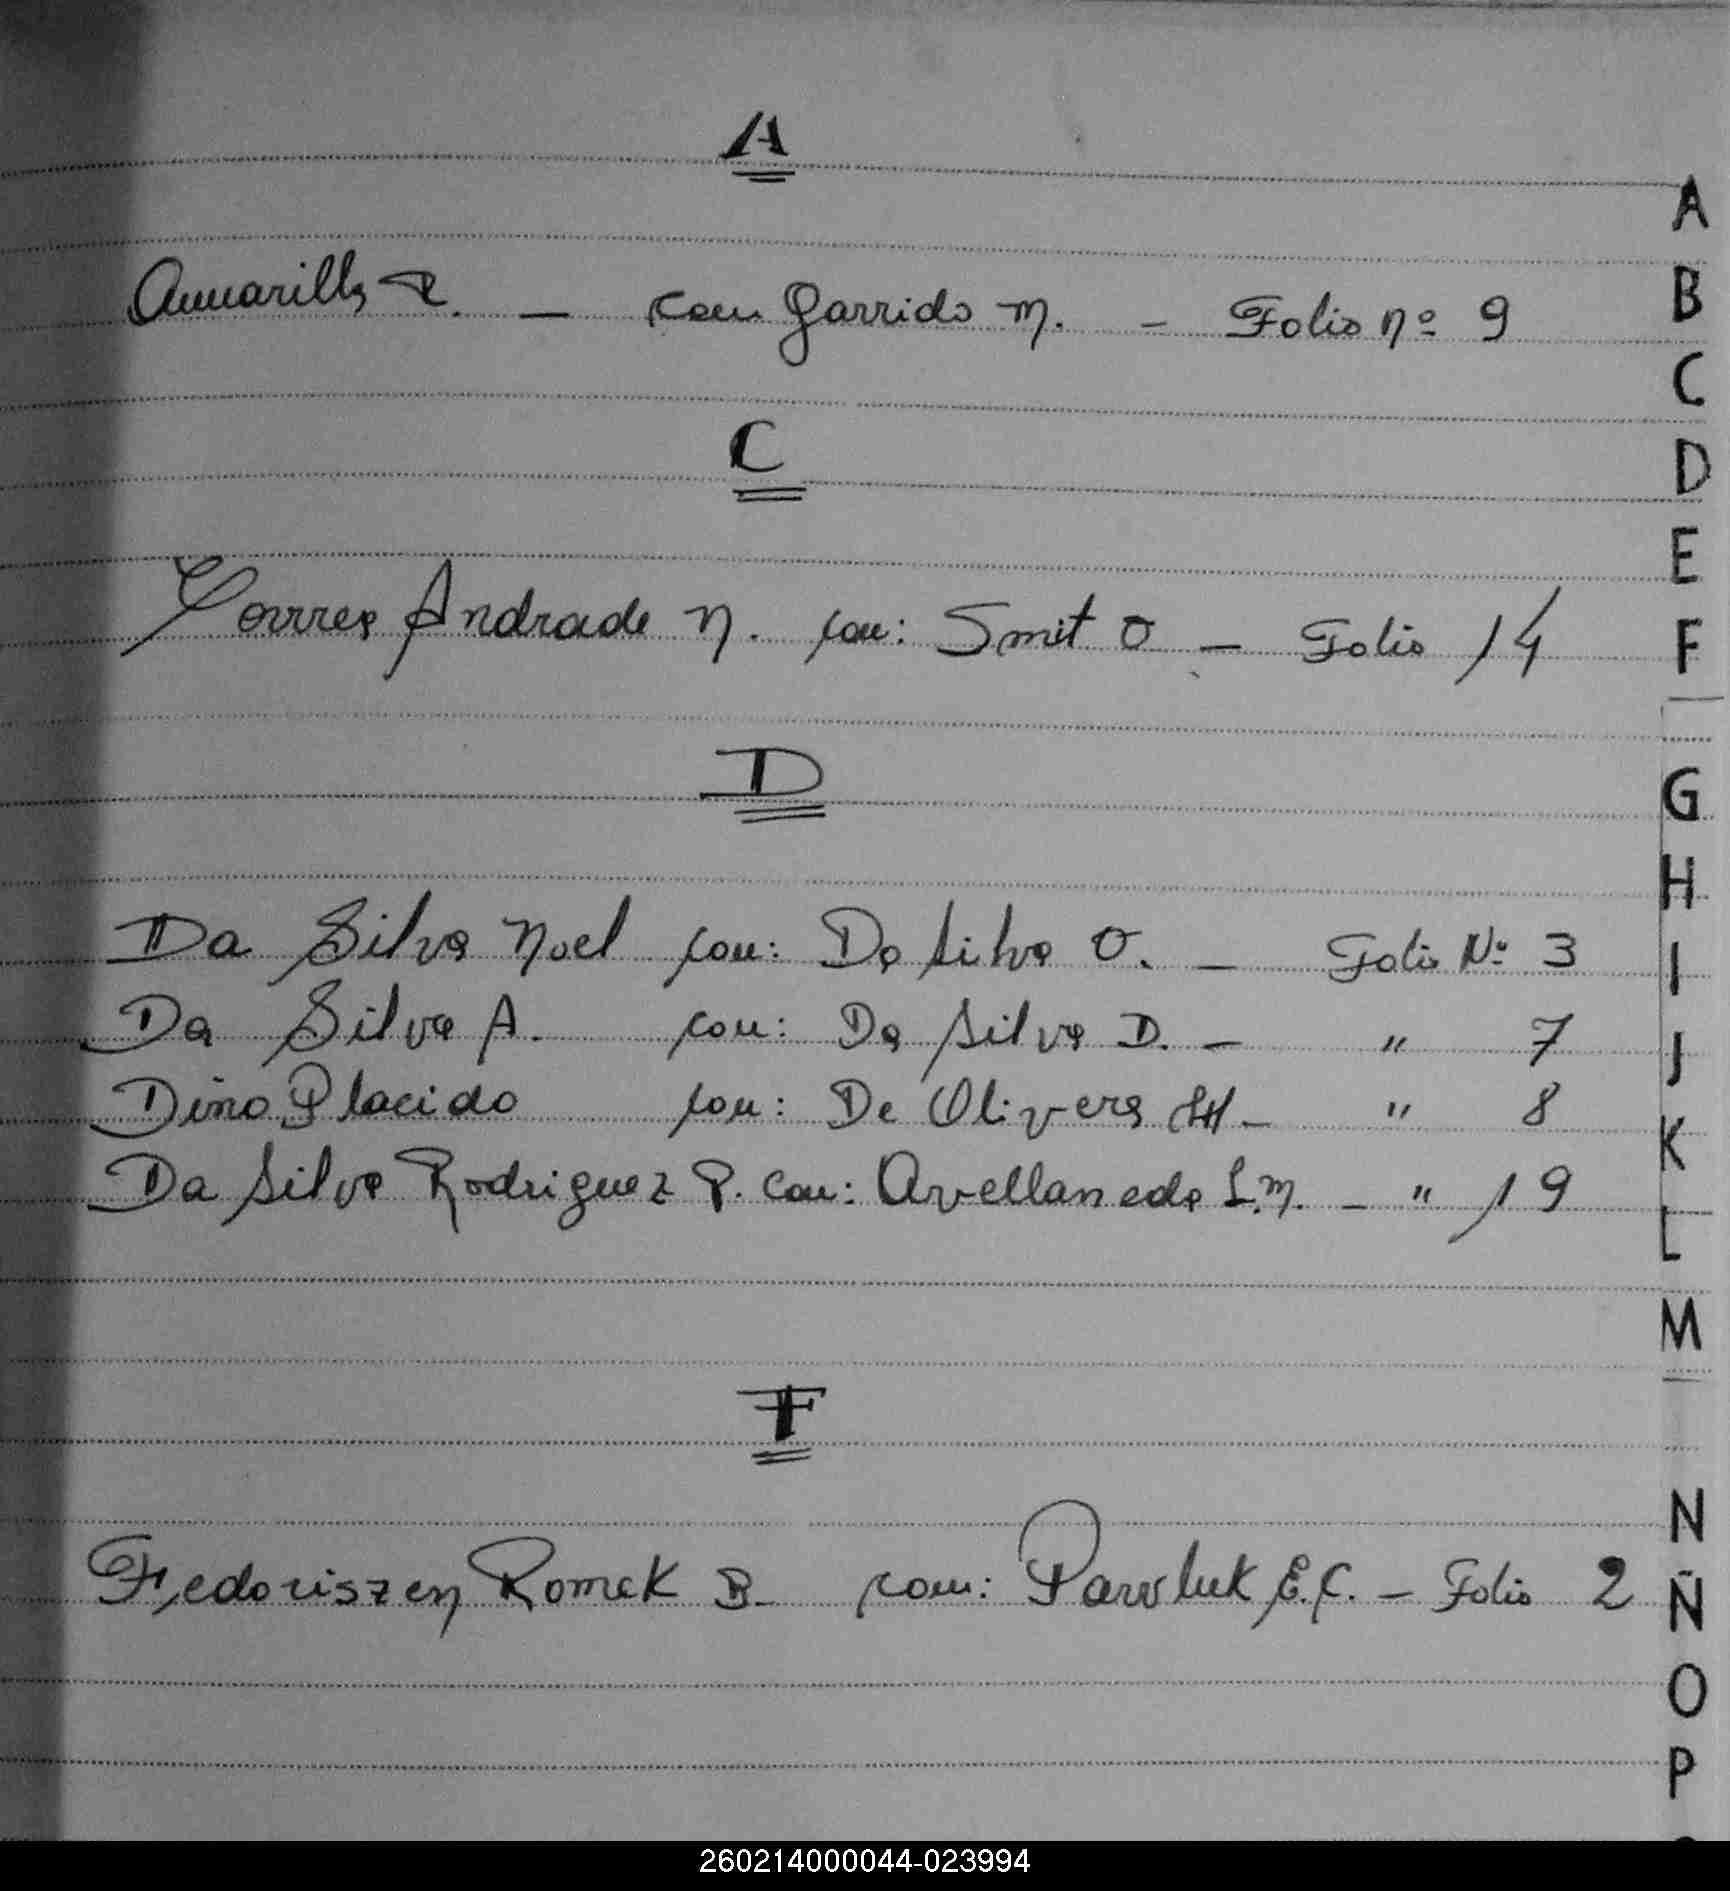 A
Amarilla R. — con Garrido M. — Folio nº 9
C
Correa Andrade N. con: Smit O — Folio 14
D
Da Silva Noel con: Da Silva O. — Folio Nº 3
Da Silva A. con: Da Silva D. — " 7
Dino Placido con: De Olivera H — " 8
Da Silva Rodriguez P. con: Avellaneda L.M. — " 19
F
Fedoriszen Romek B. con: Pawluk E.C. — Folio 2
A
B
C
D
E
F
G
H
I
J
K
L
M
N
Ñ
O
P
260214000044-023994